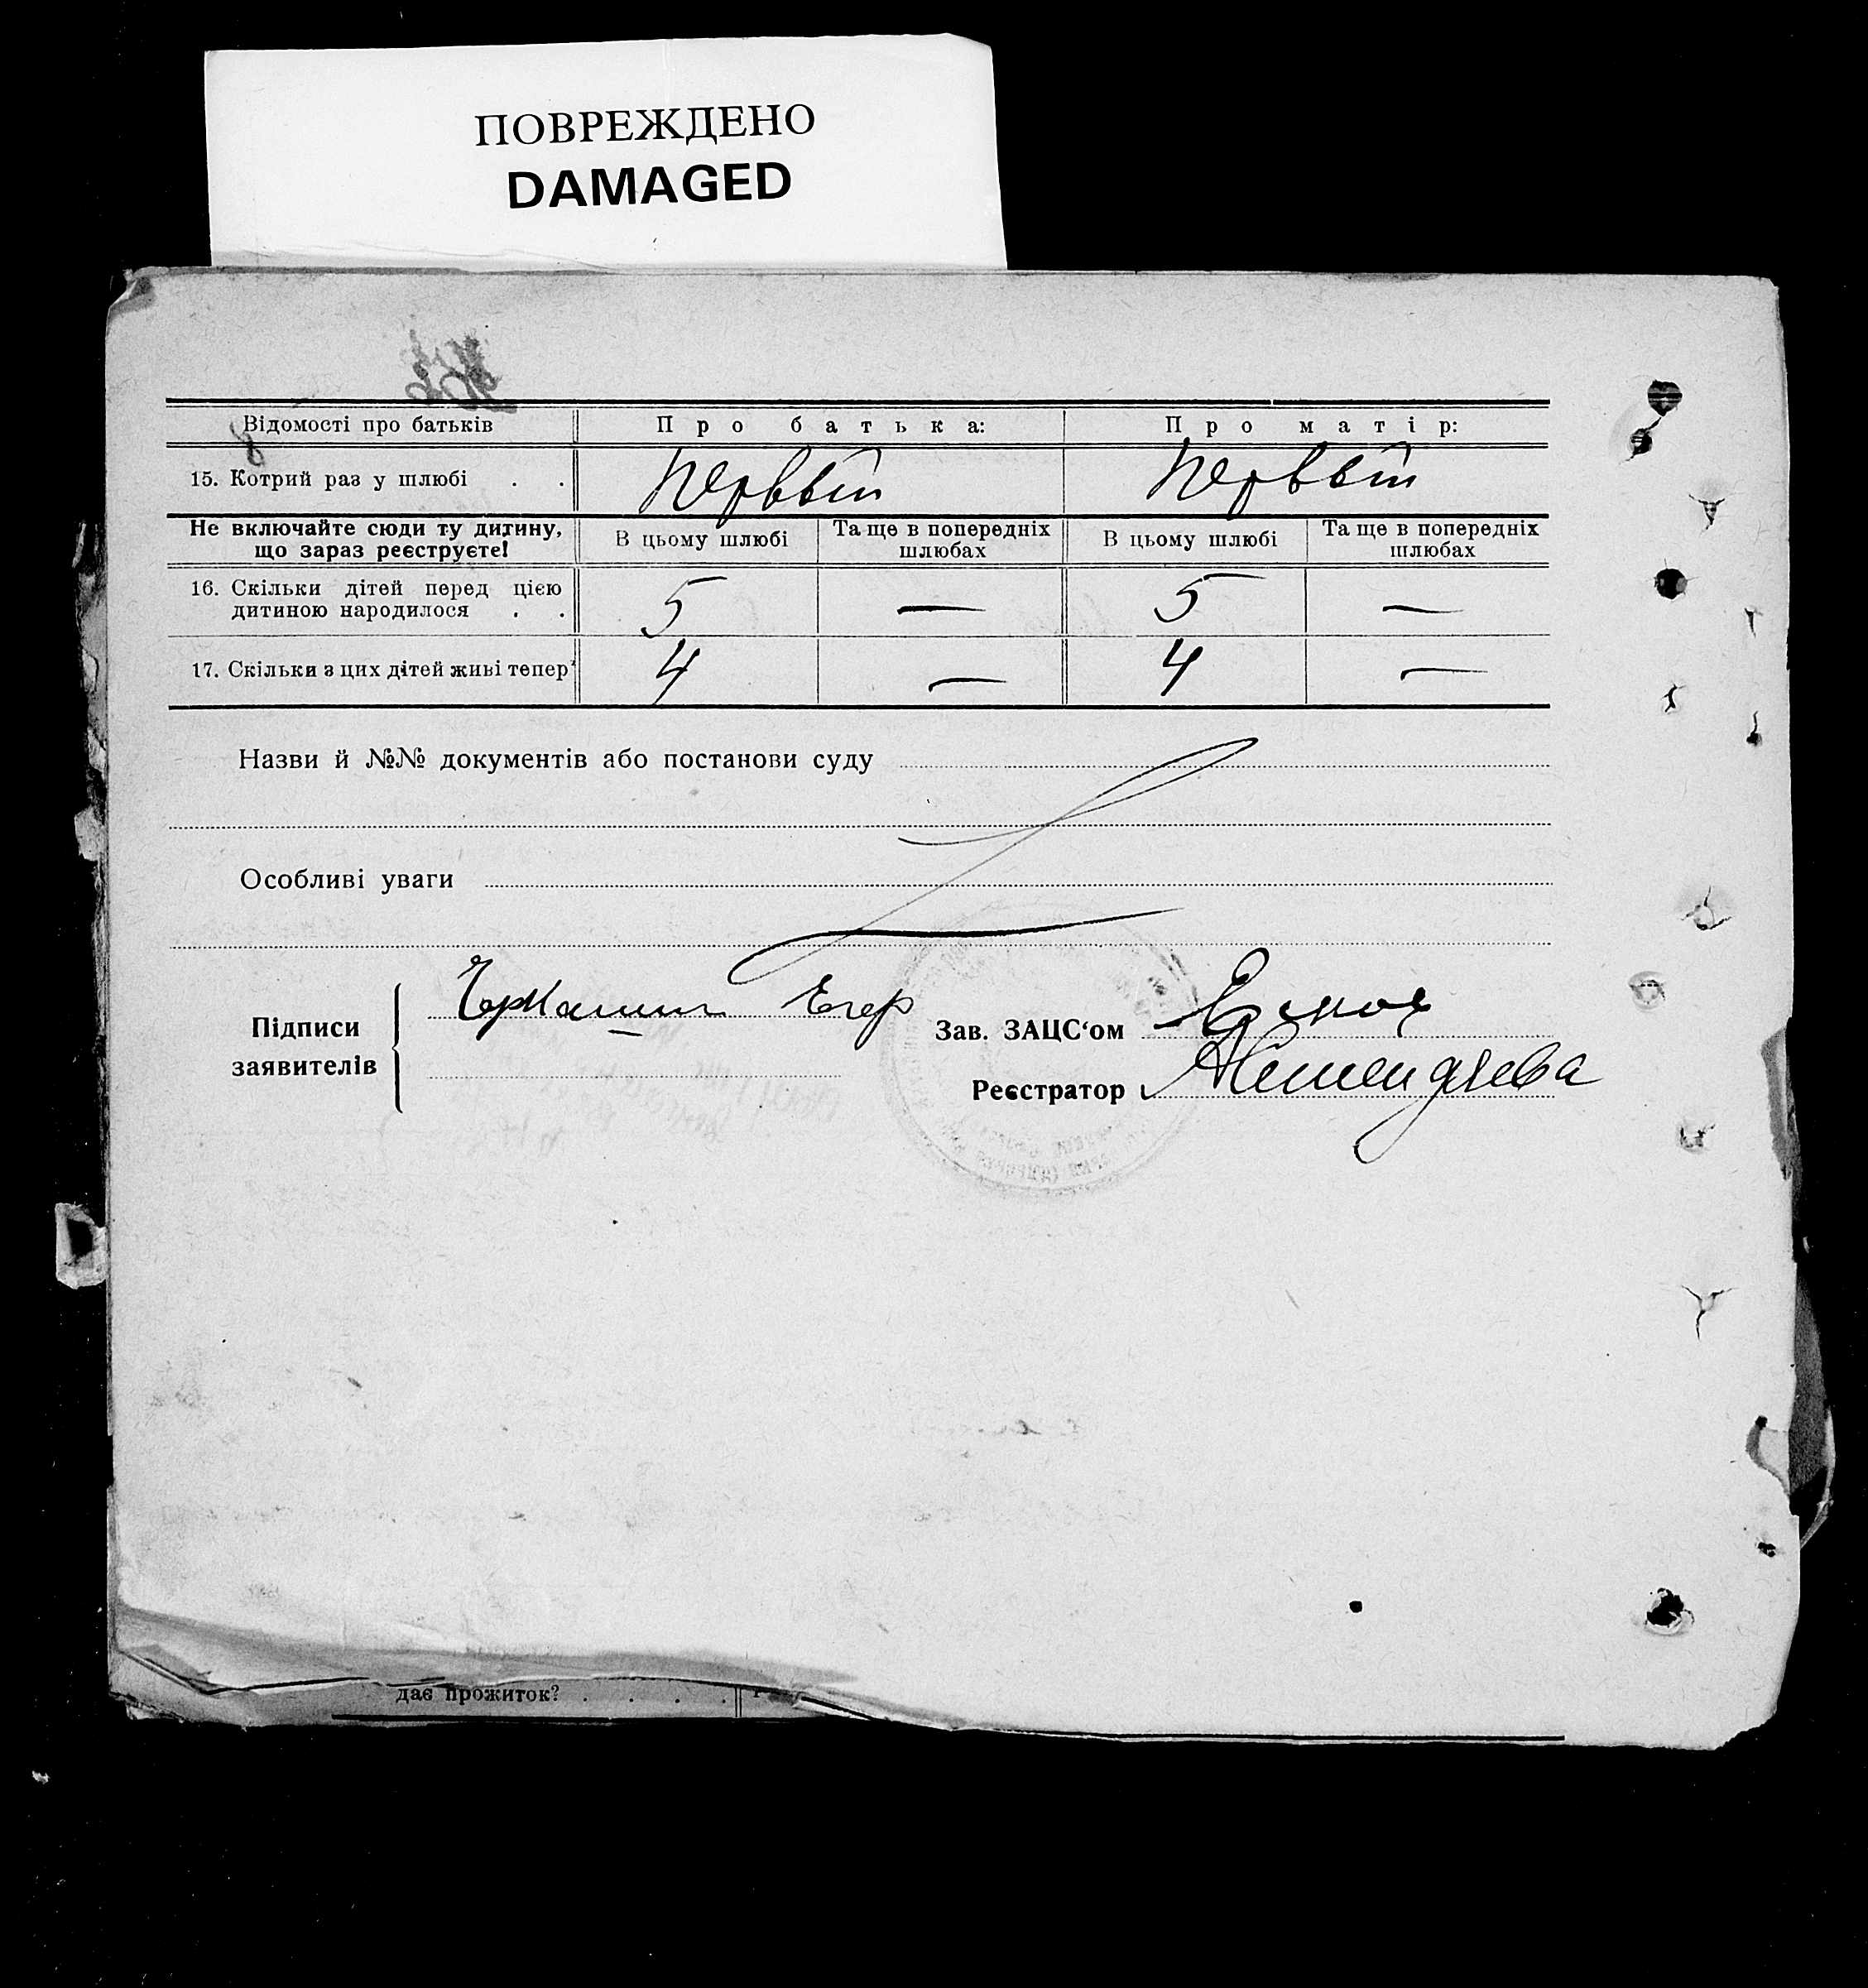 ПОВРЕЖДЕНО
DAMAGED
Відомості про батьків Про батька: Про матір:
15. Котрий раз у шлюбі . . Первый Первый
Не включайте сюди ту дитину, що зараз реєструєте! В цьому шлюбі Та ще в попередніх шлюбах В цьому шлюбі Та ще в попередніх шлюбах
16. Скільки дітей перед цією
дитиною народилося . . 5 — 5 —
17. Скільки з цих дітей живі тепер 4 — 4 —
Назви й №№ документів або постанови суду
Особливі уваги
Підписи заявителів Черкашин Егор
Зав. ЗАЦС‘ом
Реєстратор
дає прожиток? . . . .